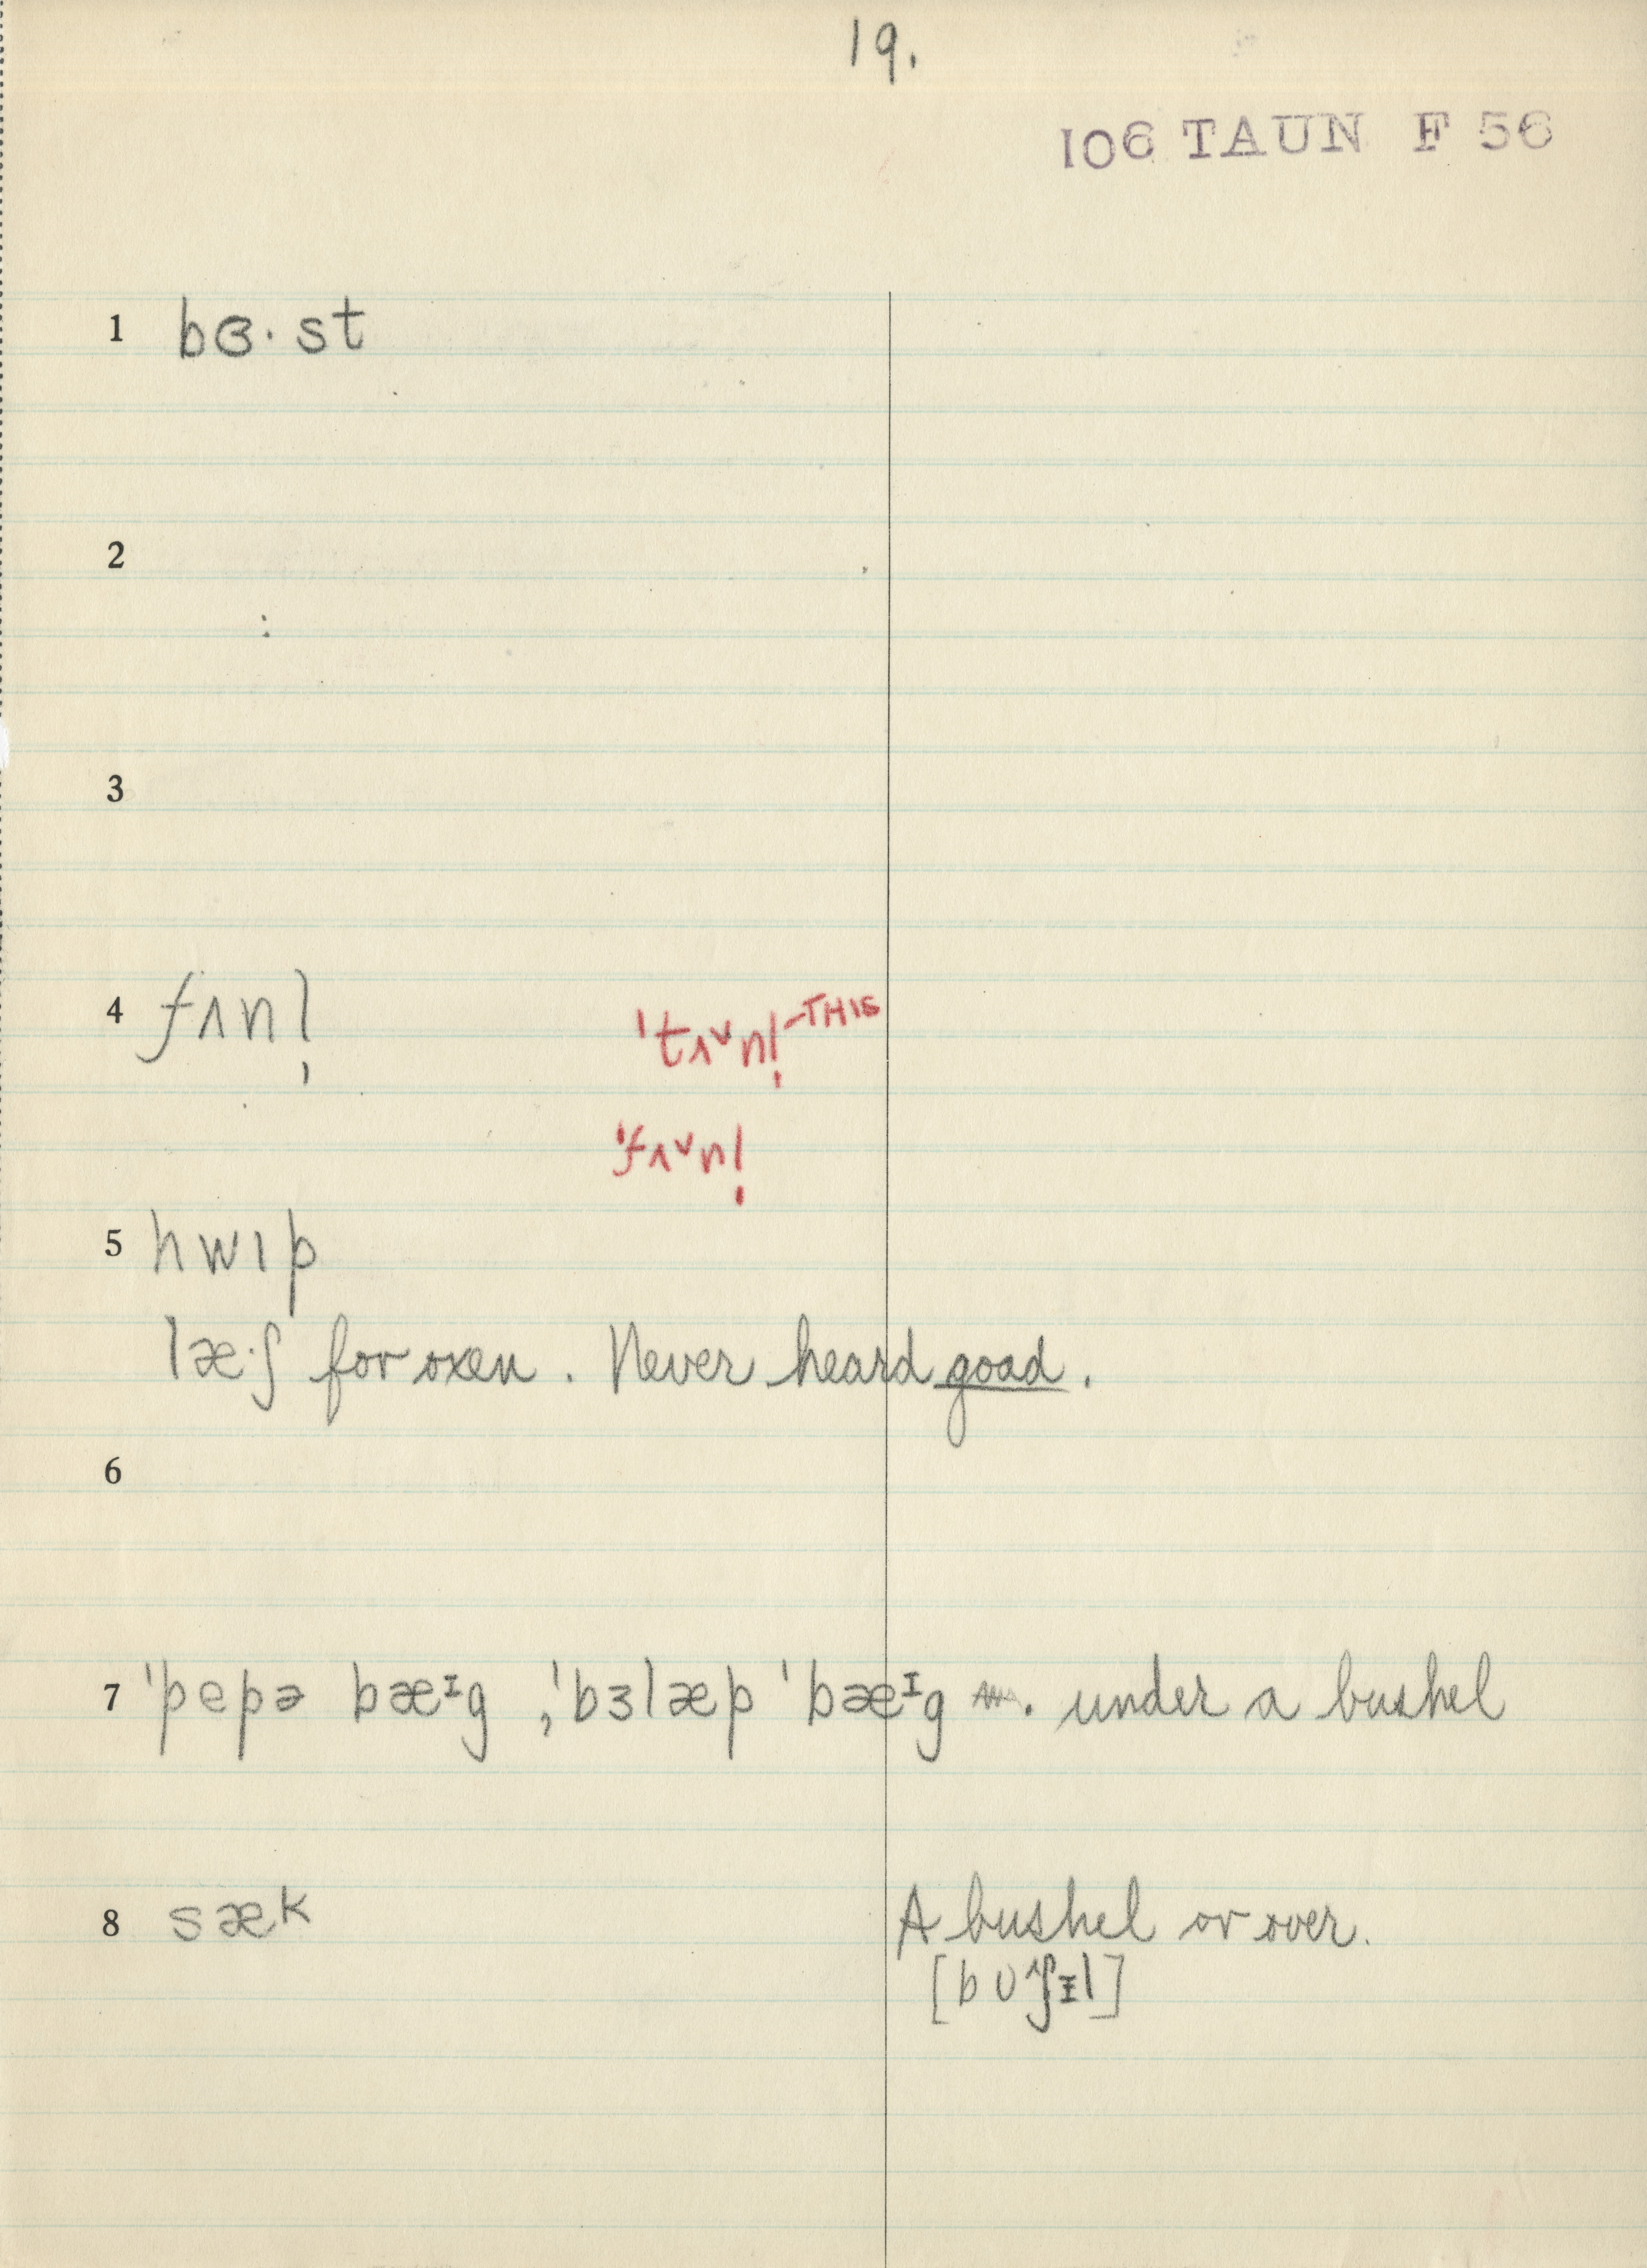 19.
106 TAUN F 56
1 bɞ·st
2
3
4 fʌnl̩
ˈtʌ˅nl̩ -THIS
ˈfʌ˅nl̩
5 hwɪp
læ·ʃ for oxen. Never heard goad.
6
7 ˈpepə bæᴵg, ˈbɜlæp ˈbæᴵg . under a bushel
8 sæk A bushel or over.
[bʊ^ʃɪ̵l]